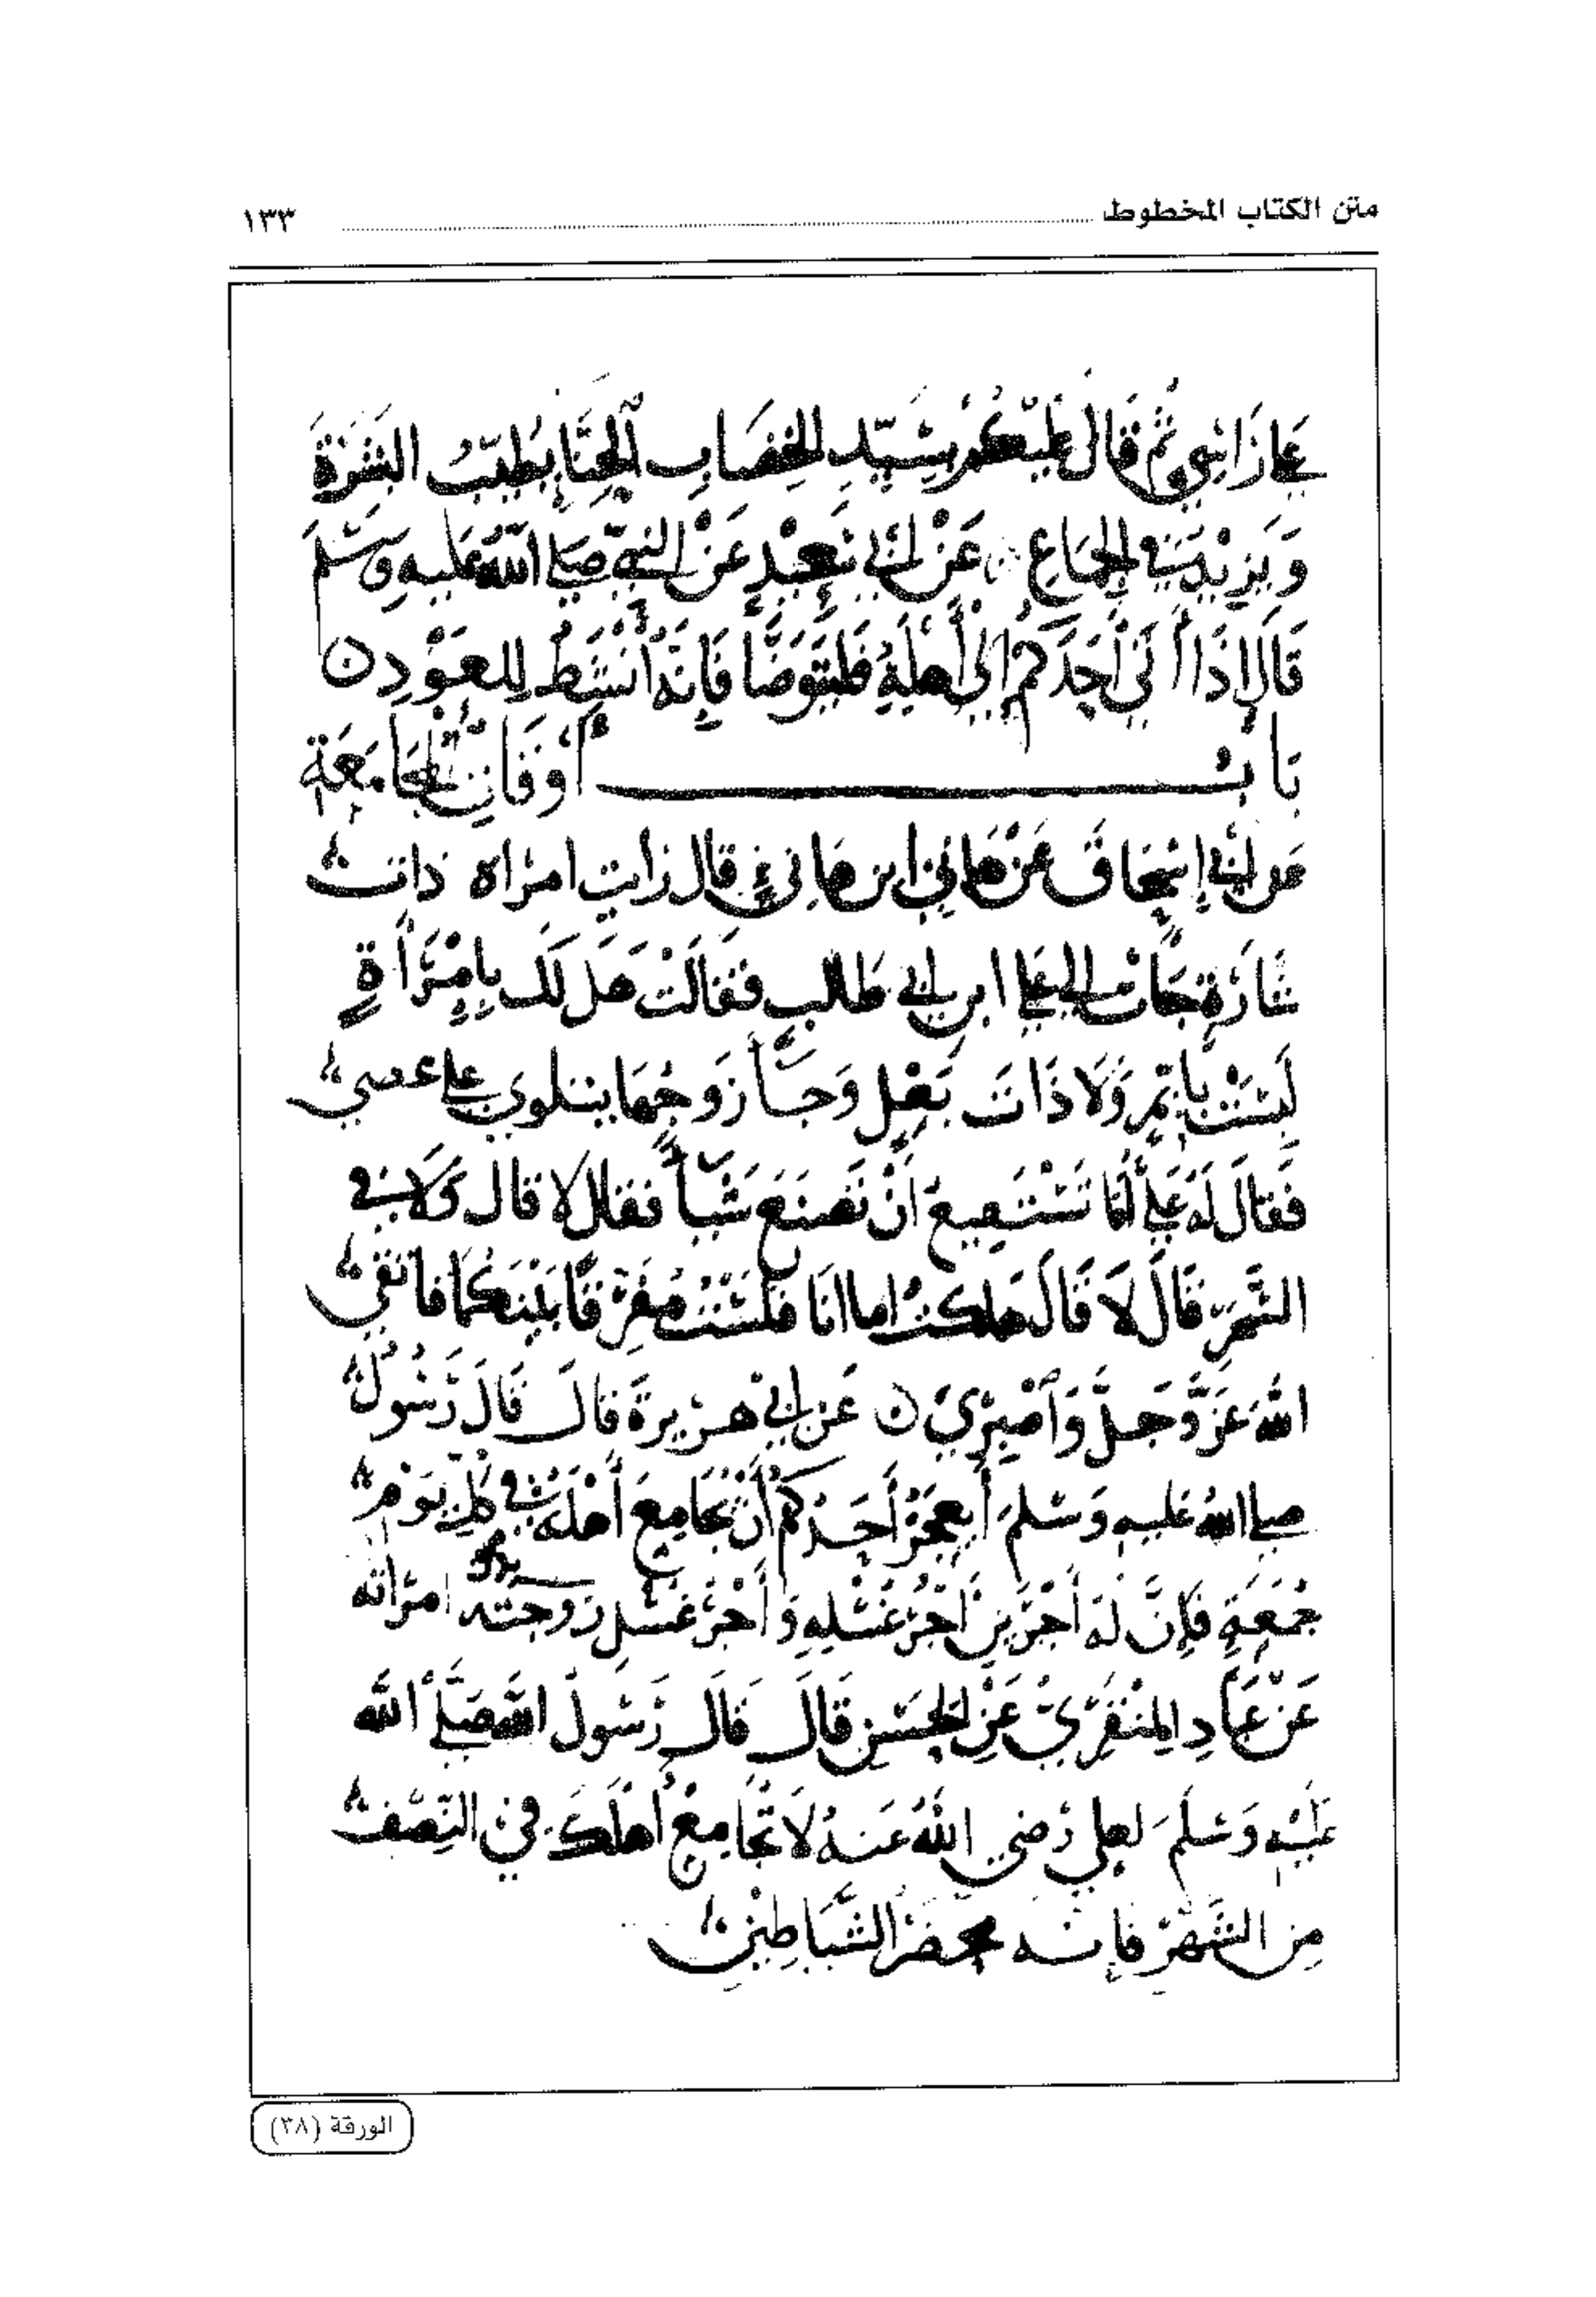 متن الكتاب المخطوط ١٣٣
على رأسي ثم قال عليكم بسيد الخضاب الحنا يطيب البشرة
ويزيد في الجماع عن أبي سعيد عن النبي صلى الله عليه وسلم
قال إذا أتى أحدكم إلى أهله فليتوضأ فإنه أنشط للعود ن
باب أوقات المجامعة
عن أبي إسحاق عن هاني ابن هانئ قال رأيت امرأة ذات
شارة جات إلى علي ابن أبي طالب فقالت هل لك بامرأة
ليست بأيم ولا ذات بعل وجأ زوجها يتلوى على عصى
فقال له علي أما تستطيع أن تصنع شيأ فقال لا قال ولا في
السحر قال لا قال هلكت اما انا فلست مفرقا بينكما فاتقي
الله عز وجل واصبري ن عن أبي هريرة قال قال رسول
صلى الله عليه وسلم أيعجز أحدكم أن يجامع أهله في كل يوم
جمعة فإن له أجرين أجر غسله وأجر غسل زوجته امرأته
عن عباد المنقري عن الحسن قال قال رسول الله صلى الله
عليه وسلم لعلي رضي الله عنه لا تجامع أهلك في النصف
من الشهر فإنه محضر الشياطين
الورقة (٣٨)